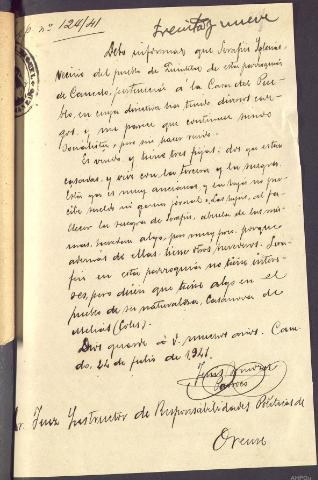 p. nº 124/41
Treinta y nueve
Debo informar que Serafín Iglesias,
vecino del pueblo de Quintas de esta parroquia
de Canedo, pertenecía á la Casa del Pue-
blo, en cuya directiva ha tenido diversos car-
gos, y me parece que continua siendo
socialista, pero sin hacer ruido.
Es viudo y tiene tres hijas: dos ya están
casadas, y vive con la tercera y la suegra.
Esta ya es muy anciana y la hija no per-
cibe sueldo ni gana jornal. Las hijas, al fa-
llecer la suegra de Serafín, abuela de las mis-
mas, heredarán algo, pero muy poco, porque
además de ellas tiene otros herederos. Sera-
fín en esta parroquia no tiene intere-
ses, pero dicen que tiene algo en el
pueblo de su naturaleza, Casanova de
Melias (Coles).
Dios guarde á V. muchos años. Cane-
do, 24 de julio de 1941.
Sr. Juez Instructor de Responsabilidades Políticas de
Orense
AHPOu